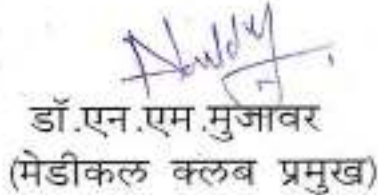 डॉ.एन.एम.मुजावर
(मेडीकल क्लब प्रमुख)